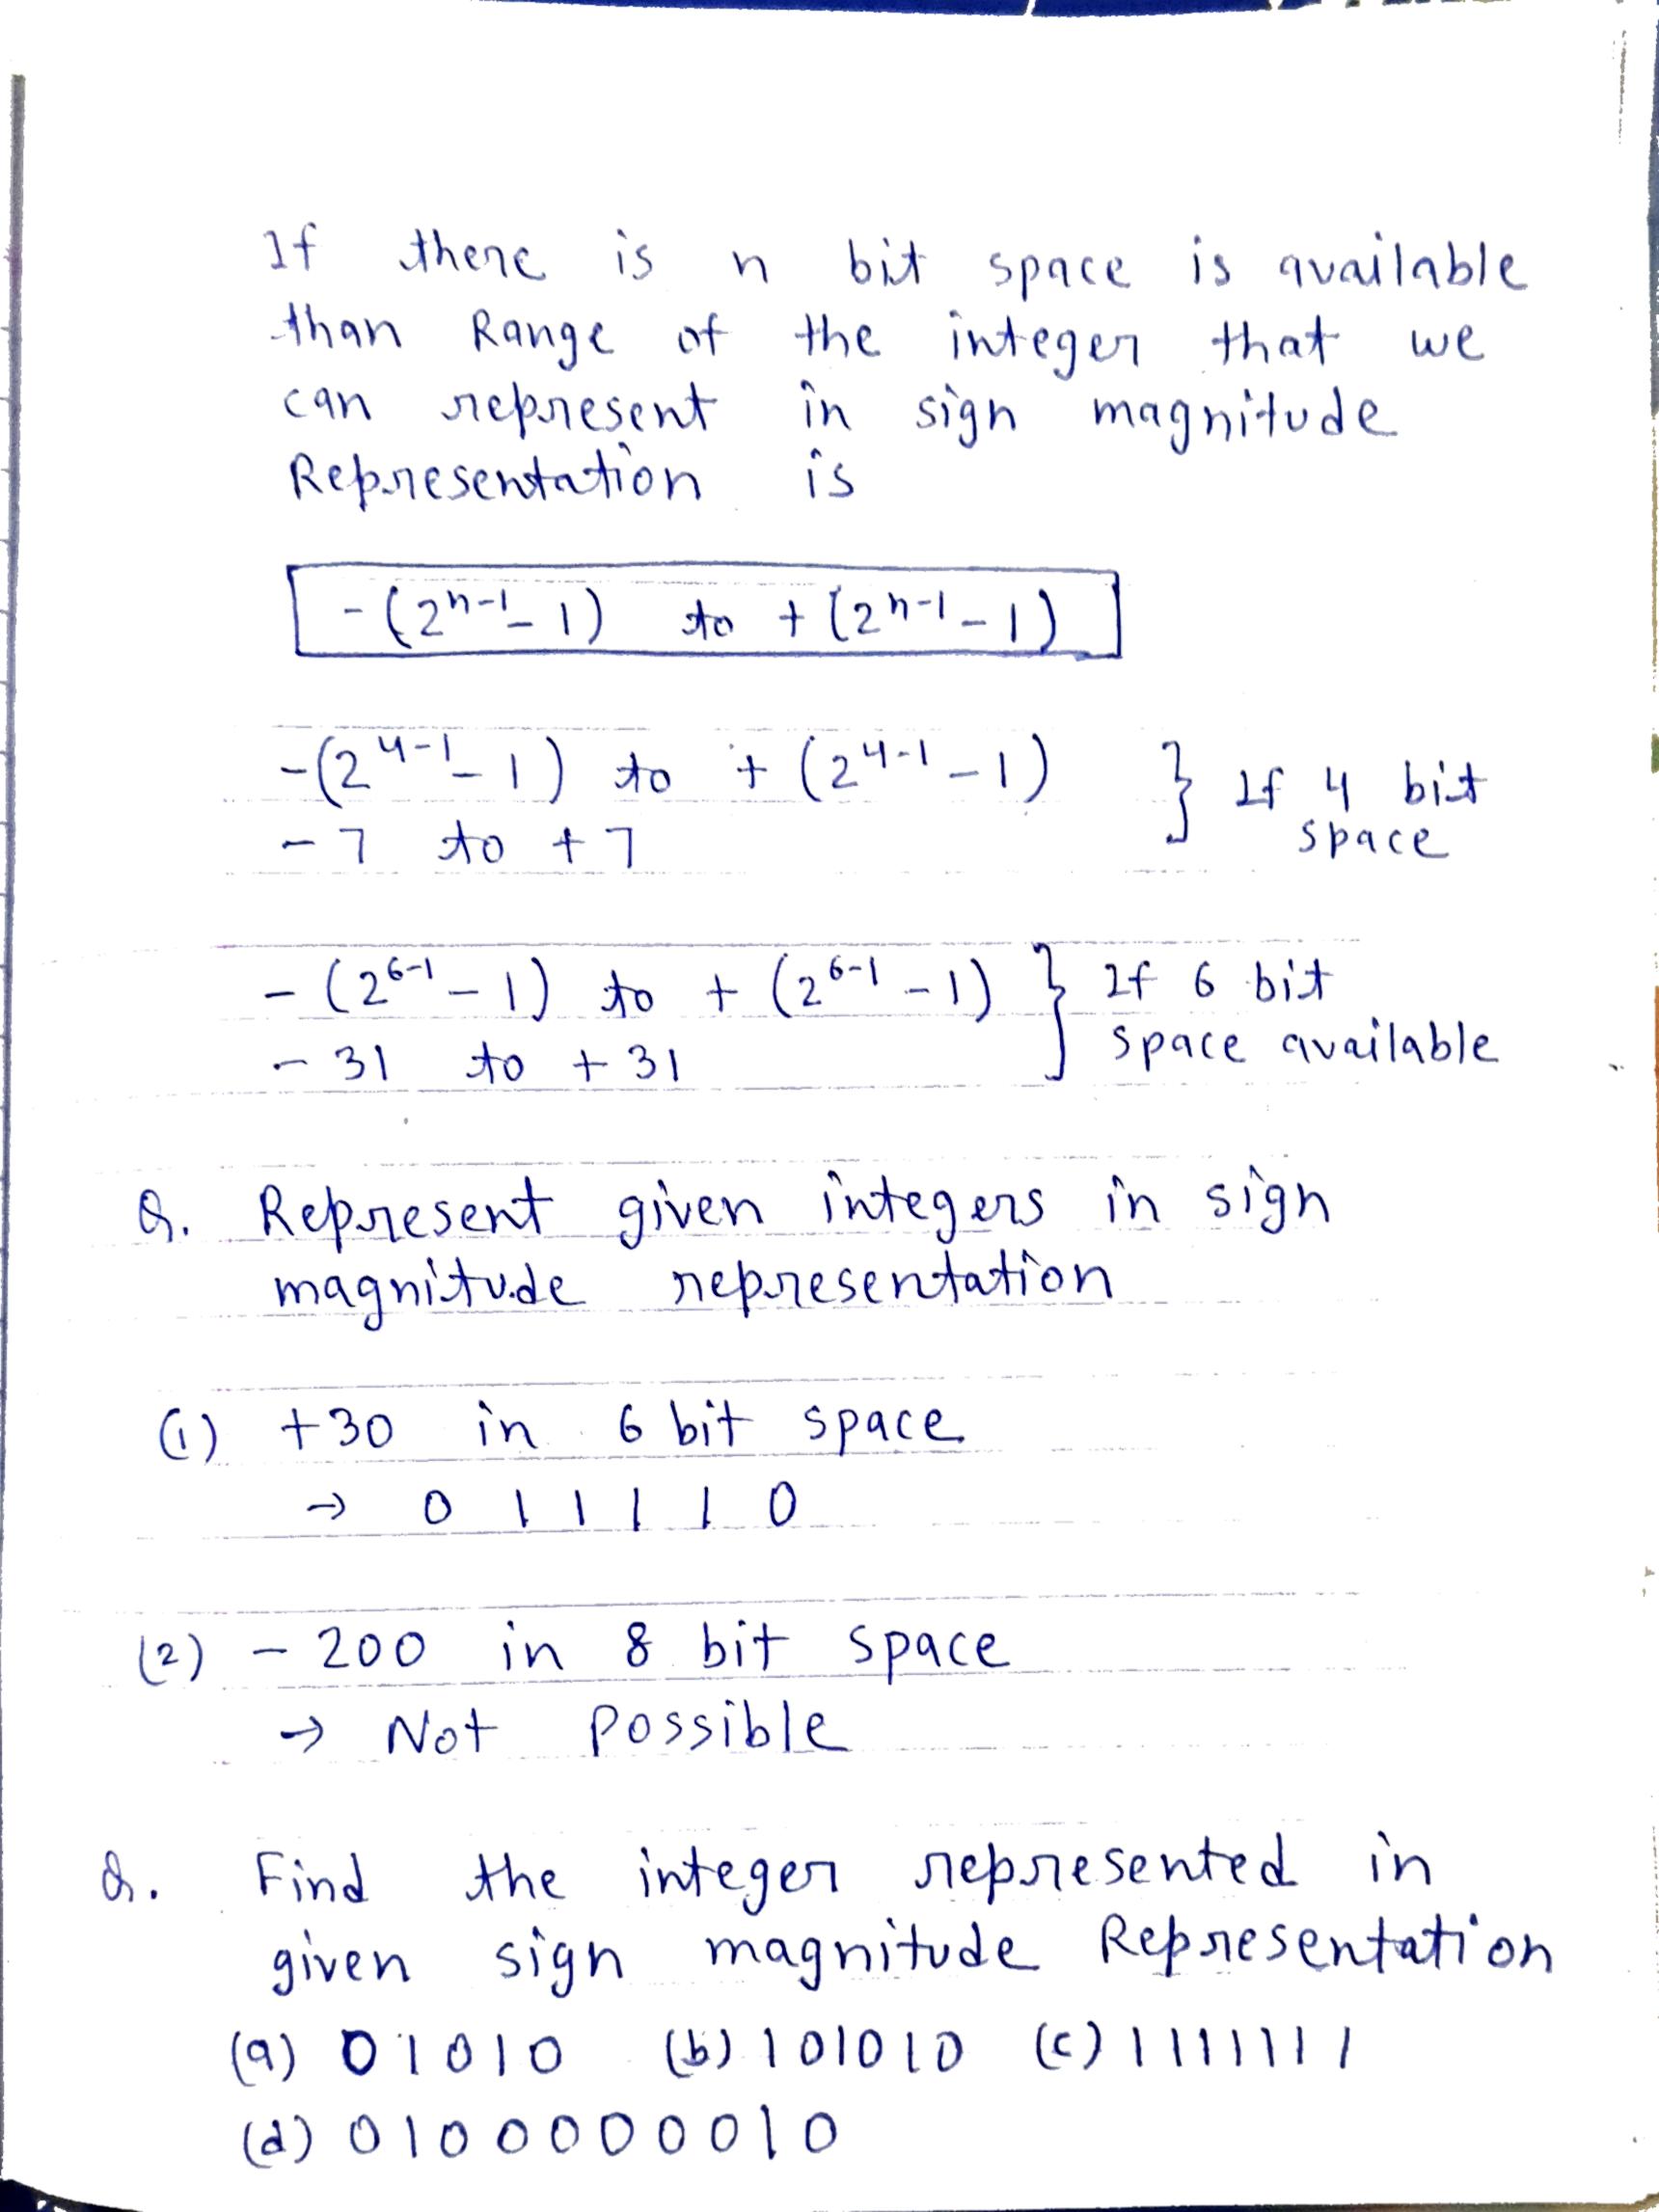 If there is n bit space is available
than Range of the integer that we
can represent in sign magnitude
Representation is
-(2ⁿ⁻¹-1) to +(2ⁿ⁻¹-1)
-(2⁴⁻¹-1) to +(2⁴⁻¹-1) } If 4 bit
space
-7 to +7
-(2⁶⁻¹-1) to +(2⁶⁻¹-1) } If 6 bit
space available
-31 to +31
Q. Represent given integers in sign
magnitude representation
(1) +30 in 6 bit space
→ 0 1 1 1 1 0
(2) -200 in 8 bit space
→ Not Possible
Q. Find the integer represented in
given sign magnitude Representation
(a) 01010 (b) 101010 (c) 1111111
(d) 0100000010